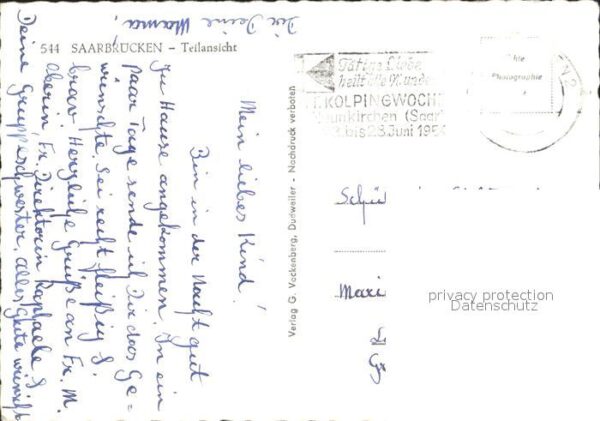 544 SAARBRÜCKEN – Teilansicht
Mein liebes Kind!
Bin in der Nacht gut
zu Hause angekommen. In ein
paar Tage sende ich Dir das Ge=
wünschte. Sei recht fleißig &
brav. Herzliche Grüße an Fr. M.
Oberin, Fr. Direktorin Raphaela &
Deine Gruppenschwester. Alles Gute wünscht
Dir Deine Mama.
Verlag G. Vockenberg, Dudweiler – Nachdruck verboten
Tätige Liebe
heilt alle Wunden
KOLPINGWOCH
unkirchen (Saar)
bis 28 Juni 195
Echte
Photographie
Schü
Mari
privacy protection
Datenschutz